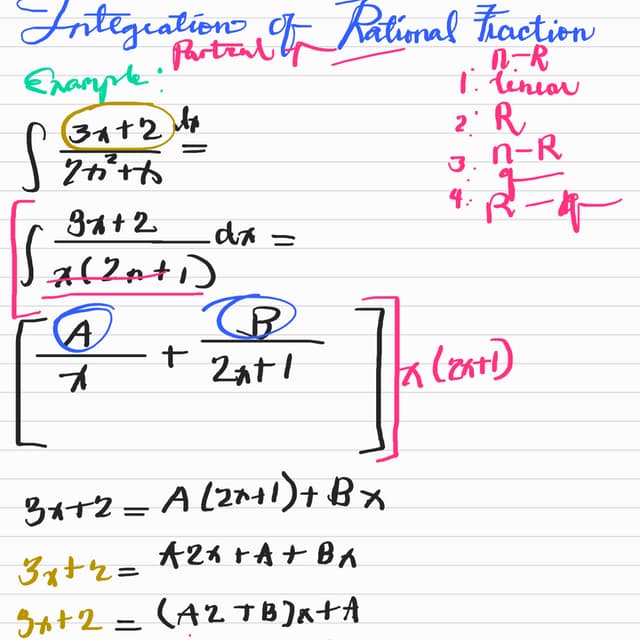 Integration of Rational Fraction
Partial f
Example:
n-R
1. linear
2. R
3. n-R
q
4. R-q
∫ 3x+2 / 2x²+x dx =
∫ 3x+2 / x(2x+1) dx =
[ A / x + B / 2x+1 ] x(2x+1)
3x+2 = A(2x+1)+Bx
3x+2 = A2x+A+Bx
3x+2 = (A2+B)x+A